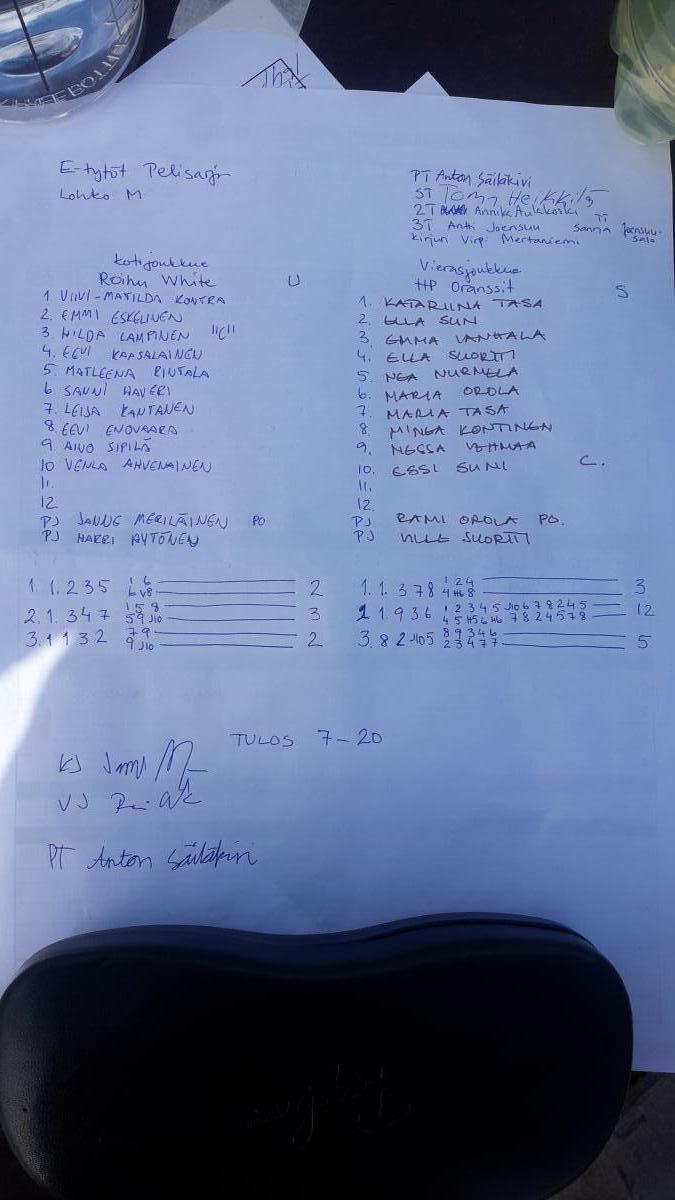 E-tytöt Pelisarja
Lohko M
PT Anton Säiläkivi
ST Tomy Heikkilä
2T Annika Aukkoski TT
3T Antti Joensuu Sanna Joensuu-
Kirjuri Virpi Mertaniemi salo
Kotijoukkue
Roihu White U
1. VIIVI-MATILDA KONTRA
2. EMMI ESKELINEN
3 HILDA LAMPINEN "C"
4. EEVI KAASALAINEN
5. MATLEENA RINTALA
6 SANNI HAVERI
7. LEIJA KANTANEN
8. EEVI ENOVAARA
9. AINO SIPILÄ
10 VENLA AHVENAINEN
11.
12
PJ JANNE MERILÄINEN PO
PJ HARRI AYTÖNEN
Vierasjoukkue
HP Oranssit S
1. KATARIINA TASA
2. ELLA SUNI
3. EMMA VANHALA
4. ELLA SUORTTI
5 NEA NURMELA
6. MARIA OROLA
7. MARIA TASA
8. MINEA KONTINEN
9. NESSA VEHMAA
10. ESSI SUNI C.
11.
12.
PJ RAMI OROLA PO.
PJ VILLE SUORTTI
1. 1. 2 3 5 1 6 2
6 v8
2. 1. 3 4 7 1 5 8 3
5 9 J10
3. 1 1 3 2 7 9 2
9 J10
1. 1. 3 7 8 1 2 4 3
4 H6 8
1 1 9 3 6 1 2 3 4 5 J10 6 7 8 2 4 5 12
4 5 H5 6 H6 7 8 2 4 5 7 8
3. 8 2 J105 8 9 3 4 6 5
2 3 4 7 7
TULOS 7-20
KJ
VJ
PT Anton Säiläkivi